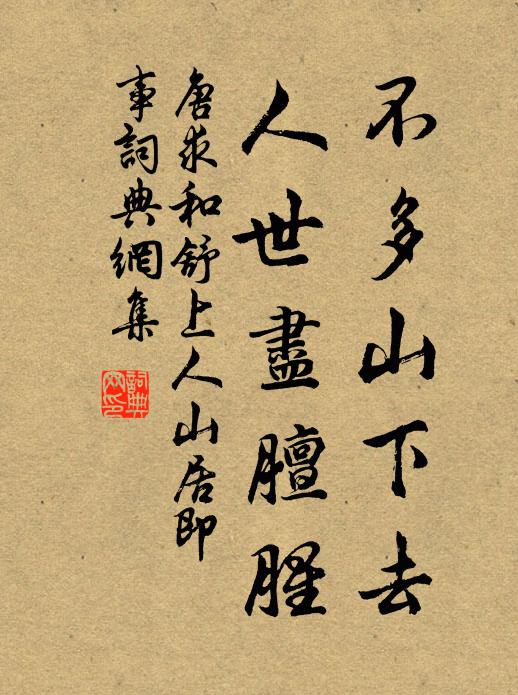 不多山下去
人世盡膻腥
唐求和舒上人山居即
事詞典網集
詞典
网印